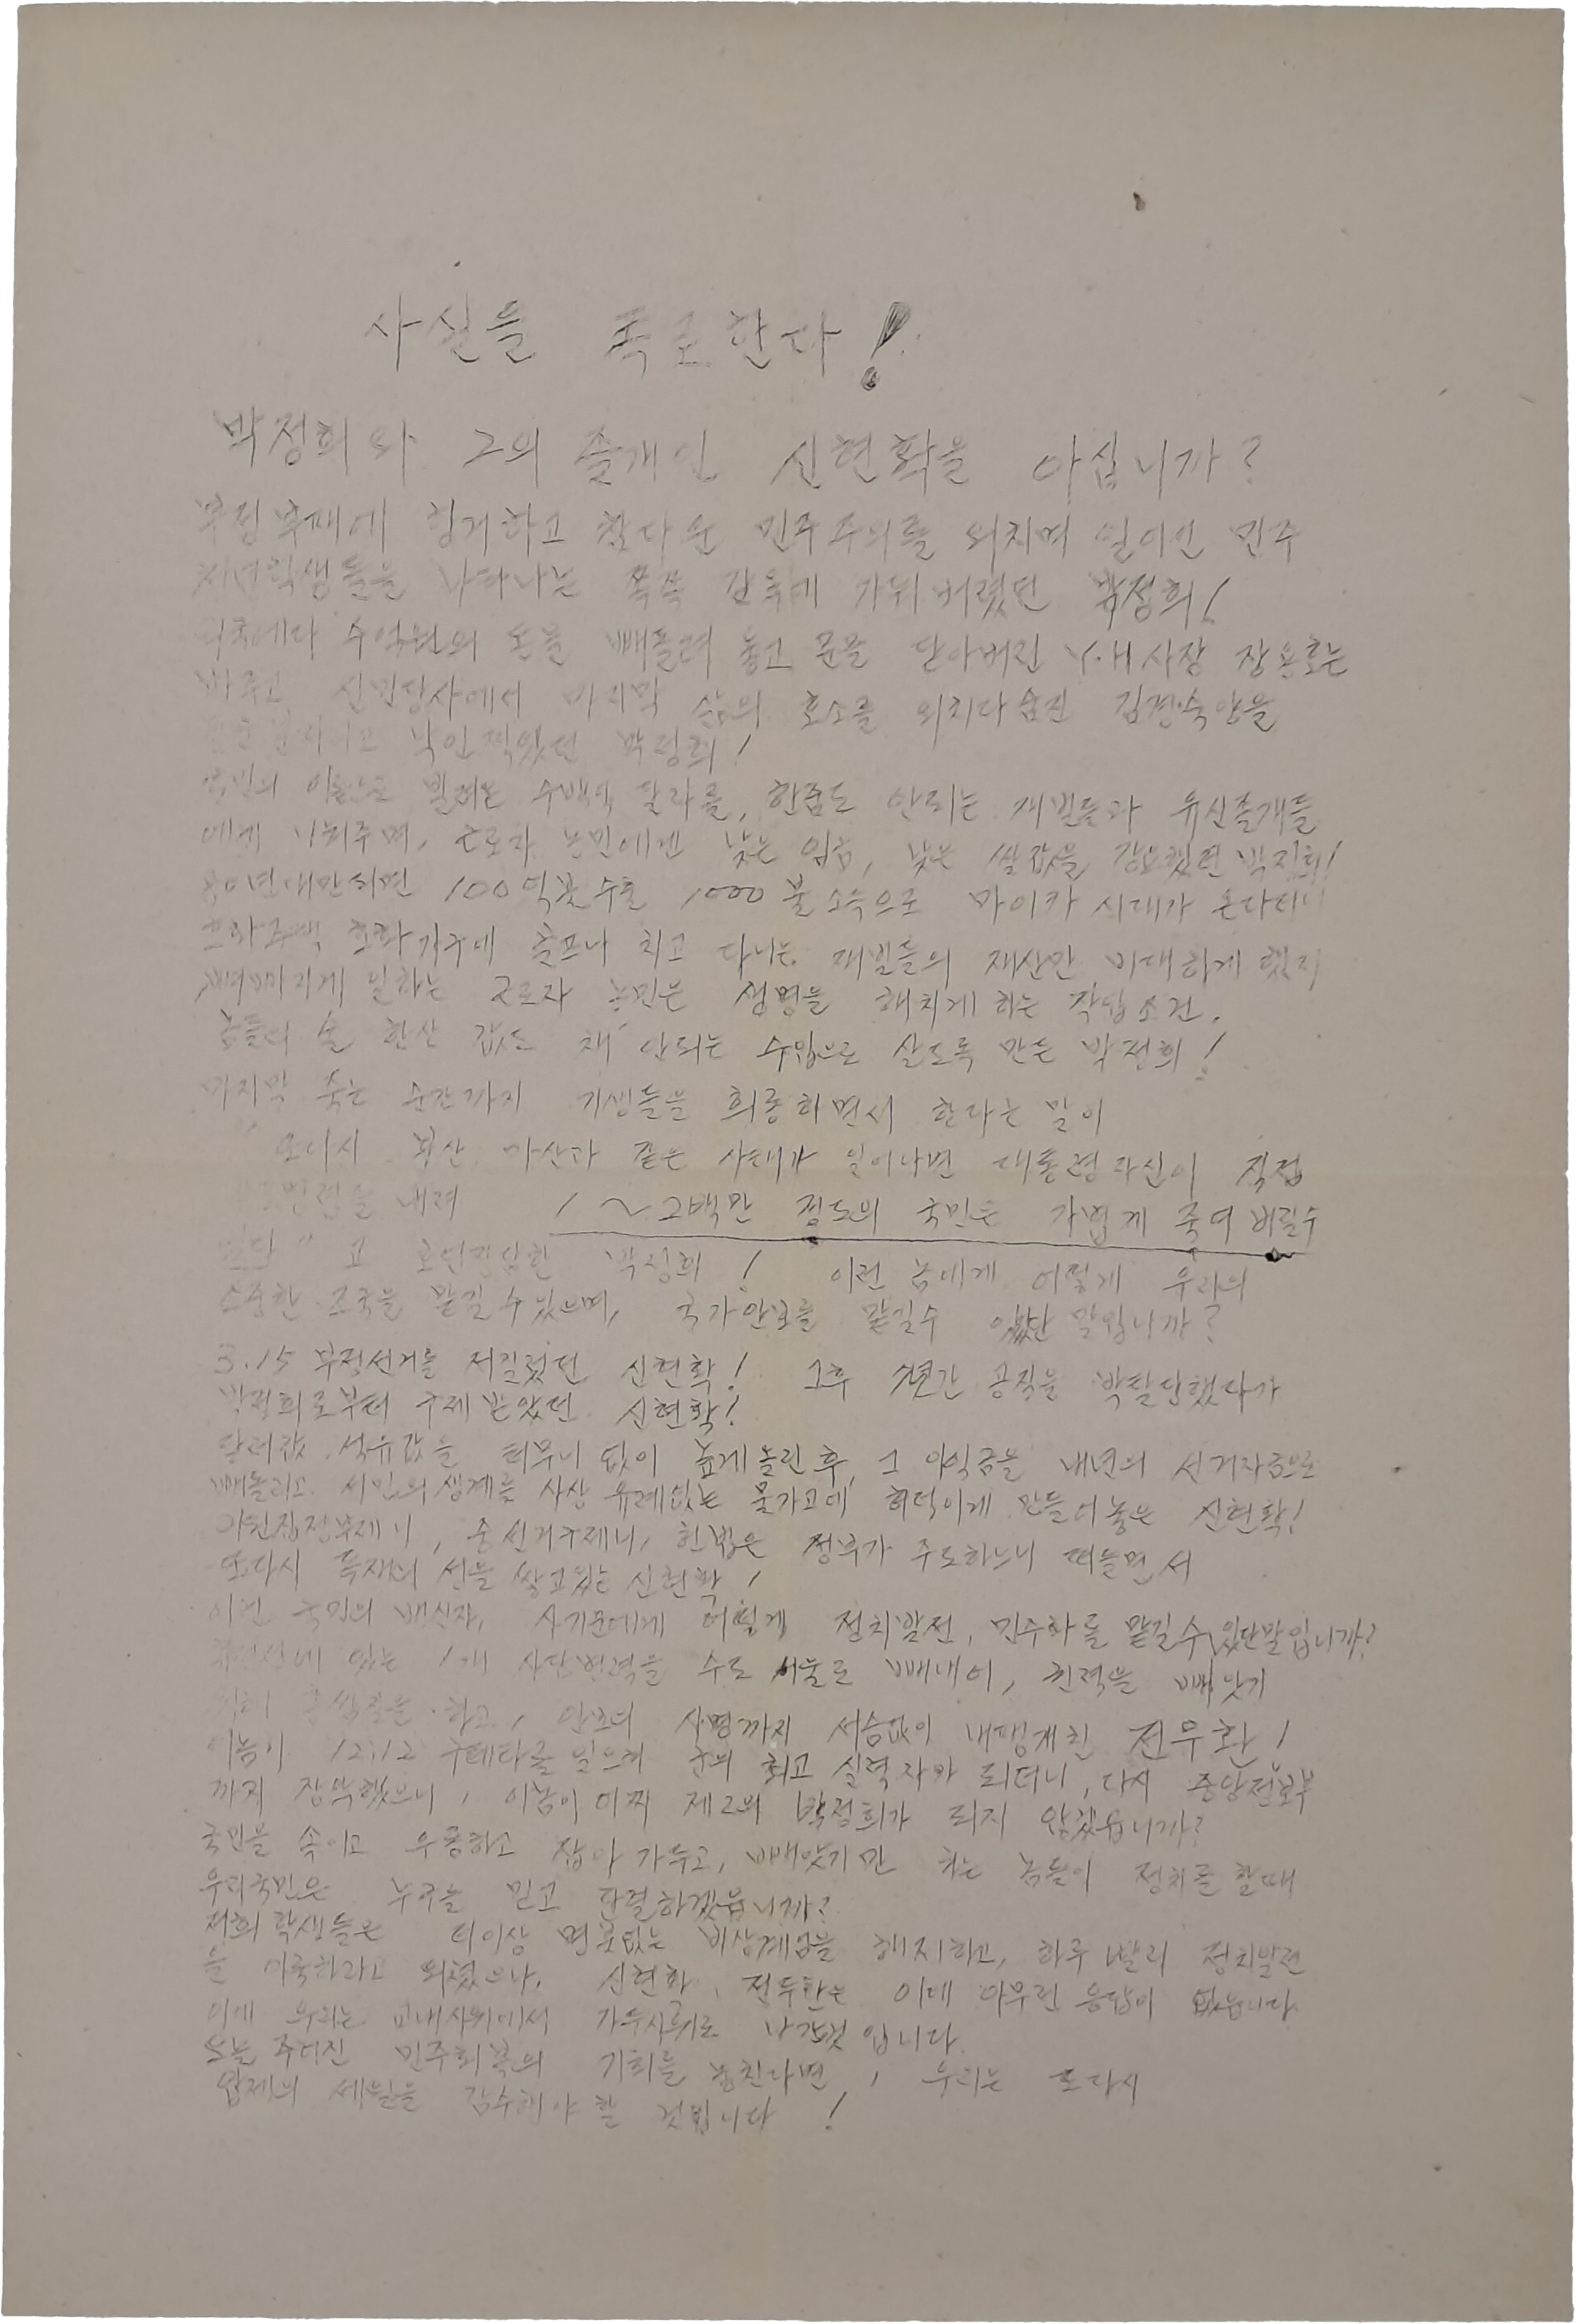 사실을 폭로한다!
박정희와 그의 졸개인 신현확을 아십니까?
부정부패에 항거하고 참다운 민주주의를 외치며 일어선 민주
청년학생들을 나타나는 쪽쪽 감옥에 가둬버렸던 박정희!
수억원의 돈을 빼돌려 놓고 문을 닫아버린 Y.H사장 장용호는
봐주고 신민당사에서 마지막 삶의 호소를 외치다 숨진 김경숙양을
낙인찍었던 박정희!
국민의 이름으로 빌려온 수백억 달라를, 한줌도 안되는 재벌들과 유신졸개들
에게 나눠주며, 근로자 농민에겐 낮은 임금, 낮은 쌀값을 강요했던 박정희!
80년대만되면 100억불수출 1000불 소득으로 마이카 시대가 온다더니
호화주택 호화가구에 골프나 치고 다니는 재벌들의 재산만 비대하게 했지
뼈빠지게 일하는 근로자 농민은 생명을 해치게 하는 작업조건,
놈들의 술 한잔 값도 채 안되는 수입으로 살도록 만든 박정희!
마지막 죽는 순간까지 기생들을 희롱하면서 한다는 말이
"또다시 부산 마산과 같은 사태가 일어나면 대통령자신이 직접
발포명령을 내려 1~2백만 정도의 국민은 가볍게 죽여 버릴수
있다"고 호언장담한 박정희! 이런 놈에게 어떻게 우리의
소중한 조국을 맡길 수 있으며, 국가안보를 맡길수 있단 말입니까?
3.15 부정선거를 저질렀던 신현확! 그후 7년간 공직을 박탈당했다가
박정희로부터 구제 받았던 신현확!
달러값 석유값을 터무니 없이 높게 올린 후, 그 이익금을 내년의 선거자금으로
빼돌리고 서민의 생계를 사상 유례없는 물가고에 허덕이게 만들어놓은 신현확!
이원집정부제니, 중선거구제니, 헌법은 정부가 주도하느니 떠들면서
또다시 독재의 성을 쌓고있는 신현확!
이런 국민의 배신자, 사기꾼에게 어떻게 정치발전, 민주화를 맡길수 있단말입니까?
휴전선에 있는 1개 사단병력을 수도 서울로 빼내어, 권력을 빼앗기
위해 총싸움을 하고, 안보의 사명까지 서슴없이 내팽개친 전두환!
이놈이 12.12 쿠테타를 일으켜 군의 최고 실력자가 되더니, 다시 중앙정보부
까지 장악했으니, 이놈이 어찌 제2의 박정희가 되지 않겠읍니까?
국민을 속이고 우롱하고 잡아 가두고, 빼앗기만 하는 놈들이 정치를 할때
우리국민은 누구를 믿고 단결하겠읍니까?
저희 학생들은 더이상 명분없는 비상계엄을 해지하고, 하루 빨리 정치발전
을 이룩하라고 외쳤으나, 신현확, 전두환은 이에 아무런 응답이 없읍니다.
이에 우리는 교내시위에서 가두시위로 나간것 입니다.
오늘 주어진 민주회복의 기회를 놓친다면, 우리는 또다시
압제의 세월을 감수해야 할 것입니다!